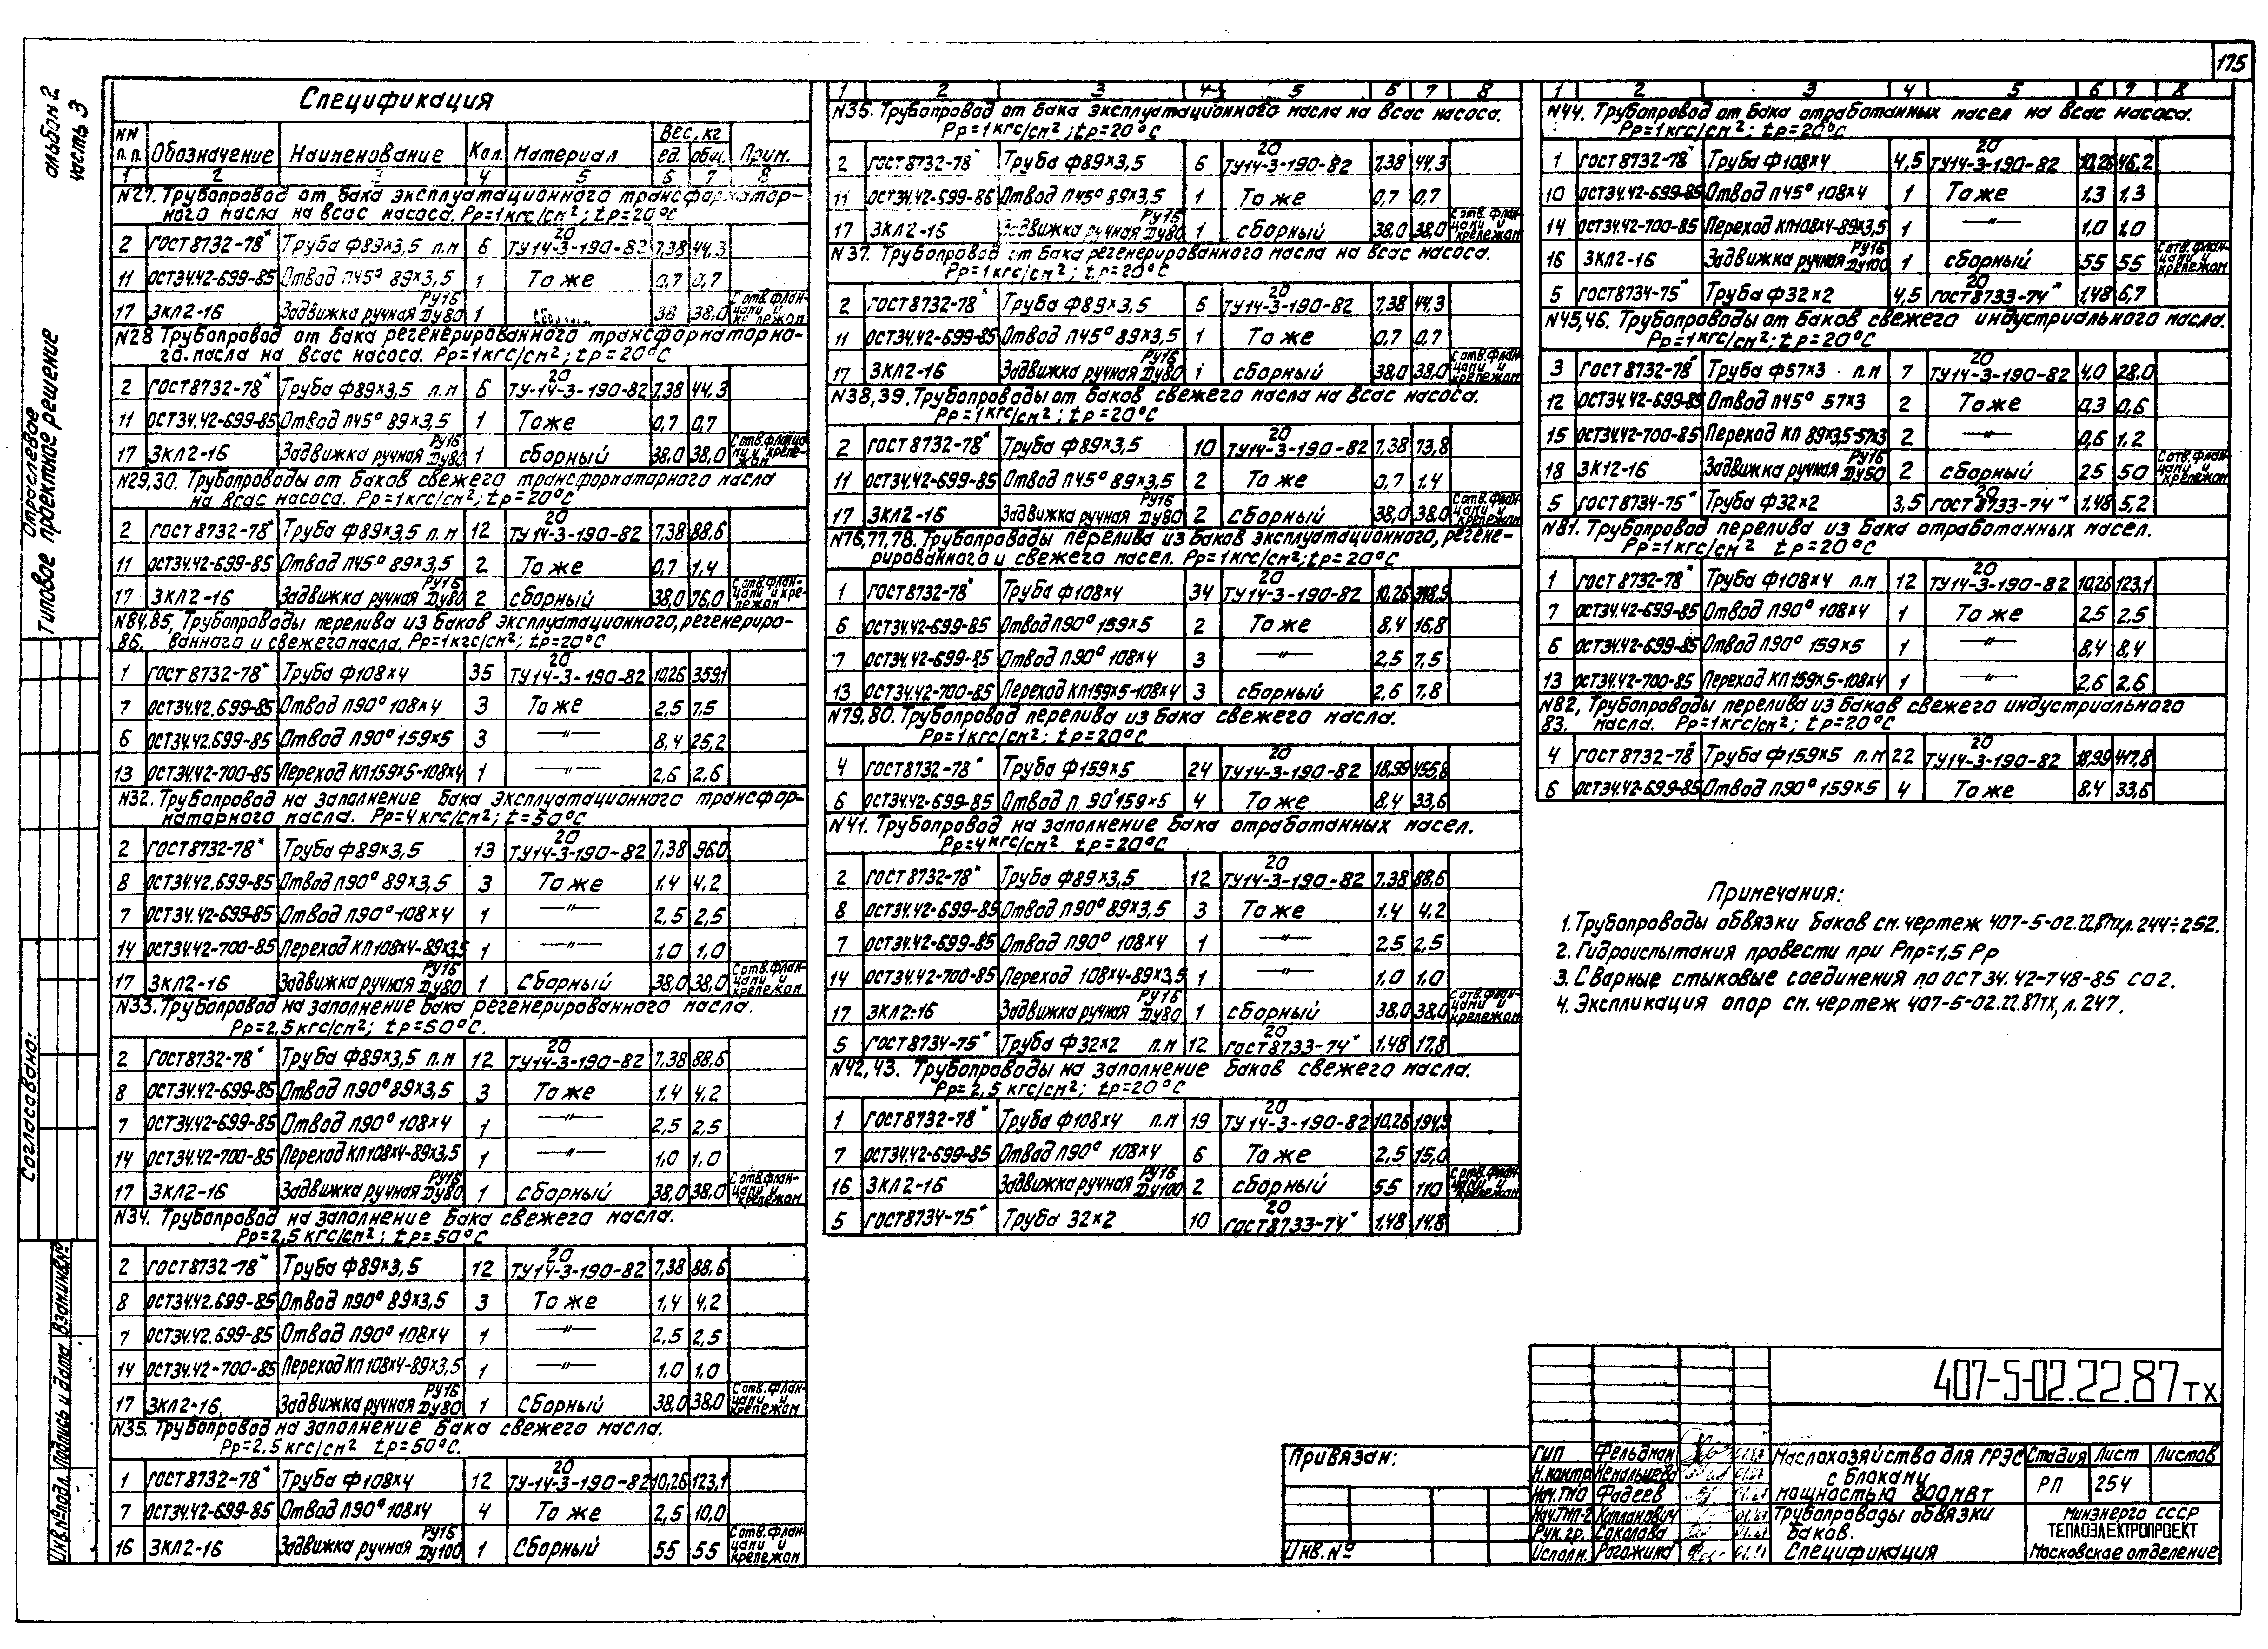 175
альбом 2
часть 3
Отраслевое
Типовое проектное решение
Согласовано:
Взам.инв.№
Подпись и дата
Инв.№ подл.
Спецификация
NN п.п. Обозначение Наименование Кол. Материал Вес, кг ед. общ. Прим.
1 2 3 4 5 6 7 8
N27. Трубопровод от бака эксплуатационного трансформатор-
ного масла на всас насоса. Рр=1кгс/см²; tр=20°С
2 ГОСТ 8732-78* Труба ф89×3,5 п.м 6 20 ТУ14-3-190-82 7,38 44,3
11 ОСТ34.42-699-85 Отвод П45° 89×3,5 1 То же 0,7 0,7
17 ЗКЛ2-16 Задвижка ручная Ру16 Ду80 1 38 38,0 С отв. флан-цами и крепежом
N28 Трубопровод от бака регенерированного трансформаторно-
го масла на всас насоса. Рр=1кгс/см²; tр=20°С
2 ГОСТ8732-78* Труба ф89×3,5 п.м 6 20 ТУ-14-3-190-82 7,38 44,3
11 ОСТ34.42-699-85 Отвод П45° 89×3,5 1 То же 0,7 0,7
17 ЗКЛ2-16 Задвижка ручная Ру16 Ду80 1 сборный 38,0 38,0 С отв. фланца-ми и крепе-жом
N29,30. Трубопроводы от баков свежего трансформаторного масла
на всас насоса. Рр=1кгс/см²; tр=20°С
2 ГОСТ 8732-78* Труба ф89×3,5 п.м 12 20 ТУ14-3-190-82 7,38 88,6
11 ОСТ34.42-699-85 Отвод П45° 89×3,5 2 То же 0,7 1,4
17 ЗКЛ2-16 Задвижка ручная Ру16 Ду80 2 сборный 38,0 76,0 С отв. флан-цами и кре-пежом
N84,85, Трубопроводы перелива из баков эксплуатационного, регенериро-
86. ванного и свежего масла. Рр=1кгс/см²; tр=20°С
1 ГОСТ 8732-78* Труба ф108×4 35 20 ТУ14-3-190-82 10,26 359,1
7 ОСТ34.42.699-85 Отвод П90° 108×4 3 То же 2,5 7,5
6 ОСТ34.42.699-85 Отвод П90° 159×5 3 —"— 8,4 25,2
13 ОСТ34.42-700-85 Переход КП159×5-108×4 1 —"— 2,6 2,6
N32. Трубопровод на заполнение бака эксплуатационного трансфор-
маторного масла. Рр=4кгс/см²; t=50°С
2 ГОСТ8732-78* Труба ф89×3,5 13 20 ТУ14-3-190-82 7,38 96,0
8 ОСТ34.42.699-85 Отвод П90° 89×3,5 3 То же 1,4 4,2
7 ОСТ34.42-699-85 Отвод П90° 108×4 1 —"— 2,5 2,5
14 ОСТ34.42-700-85 Переход КП108×4-89×3,5 1 —"— 1,0 1,0
17 ЗКЛ2-16 Задвижка ручная Ру16 Ду80 1 Сборный 38,0 38,0 С отв. флан-цами и крепежом
N33. Трубопровод на заполнение бака регенерированного масла.
Рр=2,5кгс/см²; tр=50°С.
2 ГОСТ8732-78* Труба ф89×3,5 п.м 12 20 ТУ14-3-190-82 7,38 88,6
8 ОСТ34.42-699-85 Отвод П90° 89×3,5 3 То же 1,4 4,2
7 ОСТ34.42-699-85 Отвод П90° 108×4 1 —"— 2,5 2,5
14 ОСТ34.42-700-85 Переход КП108×4-89×3,5 1 —"— 1,0 1,0
17 ЗКЛ2-16 Задвижка ручная Ру16 Ду80 1 сборный 38,0 38,0 С отв. флан-цами и крепежом
N34. Трубопровод на заполнение бака свежего масла.
Рр=2,5кгс/см²; tр=50°С
2 ГОСТ8732-78* Труба ф89×3,5 12 20 ТУ14-3-190-82 7,38 88,6
8 ОСТ34.42.699-85 Отвод П90° 89×3,5 3 То же 1,4 4,2
7 ОСТ34.42.699-85 Отвод П90° 108×4 1 —"— 2,5 2,5
14 ОСТ34.42-700-85 Переход КП108×4-89×3,5 1 —"— 1,0 1,0
17 ЗКЛ2-16. Задвижка ручная Ру16 Ду80 1 Сборный 38,0 38,0 С отв. флан-цами и крепежом
N35. Трубопровод на заполнение бака свежего масла.
Рр=2,5кгс/см² tр=50°С.
1 ГОСТ8732-78* Труба ф108×4 12 20 ТУ-14-3-190-82 10,26 123,1
7 ОСТ34.42-699-85 Отвод П90° 108×4 4 То же 2,5 10,0
16 ЗКЛ2-16 Задвижка ручная Ру16 Ду100 1 Сборный 55 55 С отв. флан-цами и крепежом
1 2 3 4 5 6 7 8
N36. Трубопровод от бака эксплуатационного масла на всас насоса.
Рр=1кгс/см²; tр=20°С
2 ГОСТ 8732-78* Труба ф89×3,5 6 20 ТУ14-3-190-82 7,38 44,3
11 ОСТ34.42-699-86 Отвод П45° 89×3,5 1 То же 0,7 0,7
17 ЗКЛ2-16 Задвижка ручная Ру16 Ду80 1 сборный 38,0 38,0 С отв. флан-цами и крепежом
N37. Трубопровод от бака регенерированного масла на всас насоса.
Рр=1кгс/см²; tр=20°С
2 ГОСТ8732-78* Труба ф89×3,5 6 20 ТУ14-3-190-82 7,38 44,3
11 ОСТ34.42-699-85 Отвод П45° 89×3,5 1 То же 0,7 0,7
17 ЗКЛ2-16 Задвижка ручная Ру16 Ду80 1 сборный 38,0 38,0 С отв. флан-цами и крепежом
N38,39. Трубопроводы от баков свежего масла на всас насоса.
Рр=1кгс/см²; tр=20°С
2 ГОСТ8732-78* Труба ф89×3,5 10 20 ТУ14-3-190-82 7,38 73,8
11 ОСТ34.42-699-85 Отвод П45° 89×3,5 2 То же 0,7 1,4
17 ЗКЛ2-16 Задвижка ручная Ру16 Ду80 2 сборный 38,0 38,0 С отв. флан-цами и крепежом
N76,77,78. Трубопроводы перелива из баков эксплуатационного, регене-
рированного и свежего масел. Рр=1кгс/см²; tр=20°С
1 ГОСТ 8732-78* Труба ф108×4 34 20 ТУ14-3-190-82 10,26 348,9
6 ОСТ34.42-699-85 Отвод П90° 159×5 2 То же 8,4 16,8
7 ОСТ34.42-699-85 Отвод П90° 108×4 3 —"— 2,5 7,5
13 ОСТ34.42-700-85 Переход КП159×5-108×4 3 сборный 2,6 7,8
N79,80. Трубопровод перелива из бака свежего масла.
Рр=1кгс/см²; tр=20°С
4 ГОСТ8732-78* Труба ф159×5 24 20 ТУ14-3-190-82 18,99 455,8
6 ОСТ34.42-699-85 Отвод П 90° 159×5 4 То же 8,4 33,6
N41. Трубопровод на заполнение бака отработанных масел.
Рр=4кгс/см² tр=20°С
2 ГОСТ8732-78* Труба ф89×3,5 12 20 ТУ14-3-190-82 7,38 88,6
8 ОСТ34.42-699-85 Отвод П90° 89×3,5 3 То же 1,4 4,2
7 ОСТ34.42-699-85 Отвод П90° 108×4 1 —"— 2,5 2,5
14 ОСТ34.42-700-85 Переход 108×4-89×3,5 1 —"— 1,0 1,0
17 ЗКЛ2-16 Задвижка ручная Ру16 Ду80 1 сборный 38,0 38,0 С отв. флан-цами и крепежом
5 ГОСТ8734-75* Труба ф32×2 п.м 12 20 ГОСТ8733-74* 1,48 17,8
N42,43. Трубопроводы на заполнение баков свежего масла.
Рр=2,5кгс/см²; tр=20°С
1 ГОСТ8732-78* Труба ф108×4 п.м 19 20 ТУ14-3-190-82 10,26 194,9
7 ОСТ34.42-699-85 Отвод П90° 108×4 6 То же 2,5 15,0
16 ЗКЛ2-16 Задвижка ручная Ру16 Ду100 2 сборный 55 110 С отв. флан-цами и крепежом
5 ГОСТ8734-75* Труба 32×2 10 20 ГОСТ8733-74* 1,48 14,8
1 2 3 4 5 6 7 8
N44. Трубопровод от бака отработанных масел на всас насоса.
Рр=1кгс/см²; tр=20°С
1 ГОСТ8732-78* Труба ф108×4 4,5 20 ТУ14-3-190-82 10,26 46,2
10 ОСТ34.42-699-85 Отвод П45° 108×4 1 То же 1,3 1,3
14 ОСТ34.42-700-85 Переход КП108×4-89×3,5 1 —"— 1,0 1,0
16 ЗКЛ2-16 Задвижка ручная Ру16 Ду100 1 сборный 55 55 С отв. флан-цами и крепежом
5 ГОСТ8734-75* Труба ф32×2 4,5 20 ГОСТ8733-74* 1,48 6,7
N45,46. Трубопроводы от баков свежего индустриального масла.
Рр=1кгс/см²; tр=20°С
3 ГОСТ8732-78* Труба ф57×3 п.м 7 20 ТУ14-3-190-82 4,0 28,0
12 ОСТ34.42-699-85 Отвод П45° 57×3 2 То же 0,3 0,6
15 ОСТ34.42-700-85 Переход КП 89×3,5-57×3 2 —"— 0,6 1,2
18 ЗК12-16 Задвижка ручная Ру16 Ду50 2 сборный 25 50 С отв. флан-цами и крепежом
5 ГОСТ8734-75* Труба ф32×2 3,5 20 ГОСТ8733-74* 1,48 5,2
N81. Трубопровод перелива из бака отработанных масел.
Рр=1кгс/см² tр=20°С
1 ГОСТ 8732-78* Труба ф108×4 п.м 12 20 ТУ14-3-190-82 10,26 123,1
7 ОСТ34.42-699-85 Отвод П90° 108×4 1 То же 2,5 2,5
6 ОСТ34.42-699-85 Отвод П90° 159×5 1 —"— 8,4 8,4
13 ОСТ34.42-700-85 Переход КП159×5-108×4 1 —"— 2,6 2,6
N82, Трубопроводы перелива из баков свежего индустриального
83. масла. Рр=1кгс/см²; tр=20°С
4 ГОСТ8732-78* Труба ф159×5 п.м 22 20 ТУ14-3-190-82 18,99 417,8
6 ОСТ34.42-699-85 Отвод П90° 159×5 4 То же 8.4 33,6
Примечания:
1. Трубопроводы обвязки баков см. чертеж 407-5-02.22.87тх,л.244÷252.
2. Гидроиспытания провести при Рпр=1,5 Рр
3. Сварные стыковые соединения по ОСТ 34.42-748-85 С02.
4. Экспликация опор см. чертеж 407-5-02.22.87тх, л.247.
Привязан:
Инв.№
407-5-02.22.87 тх
ГИП Фельдман 01.87
Н.контр. 01.87
Нач.ТМО Фадеев
Нач.ТМП-2 Каплакович 01.87
Рук.гр. Соколова
Исполн. Рогожина 01.87
Маслохозяйство для ГРЭС
с блоками
мощностью 800МВт
Трубопроводы обвязки
баков.
Спецификация
Стадия Лист Листов
РП 254
Минэнерго СССР
ТЕПЛОЭЛЕКТРОПРОЕКТ
Московское отделение